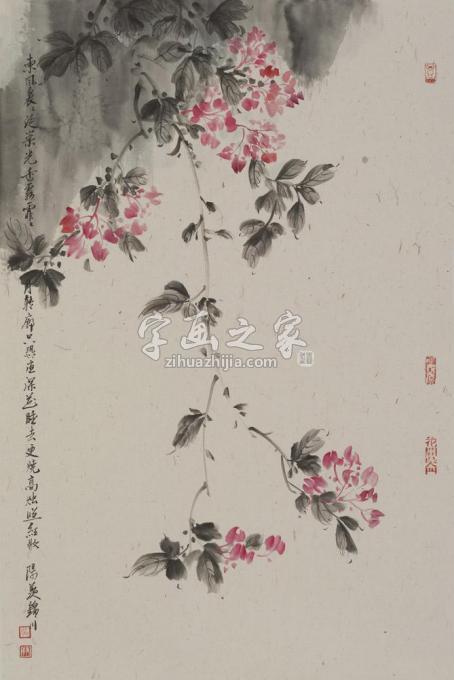 東風裊裊泛崇光香霧霏霏月轉廊只恐夜深花睡去更燒高燭照紅妝 陽羨錦川
字画之家
zihuazhijia.com